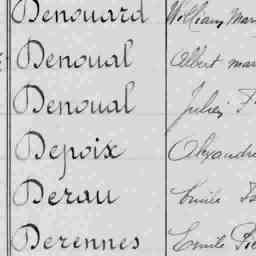 Denouard William Mar
Denoual Albert mar
Denoual Jules F
Depoix Alexandre
Derau Emile
Derennes Emile Pie